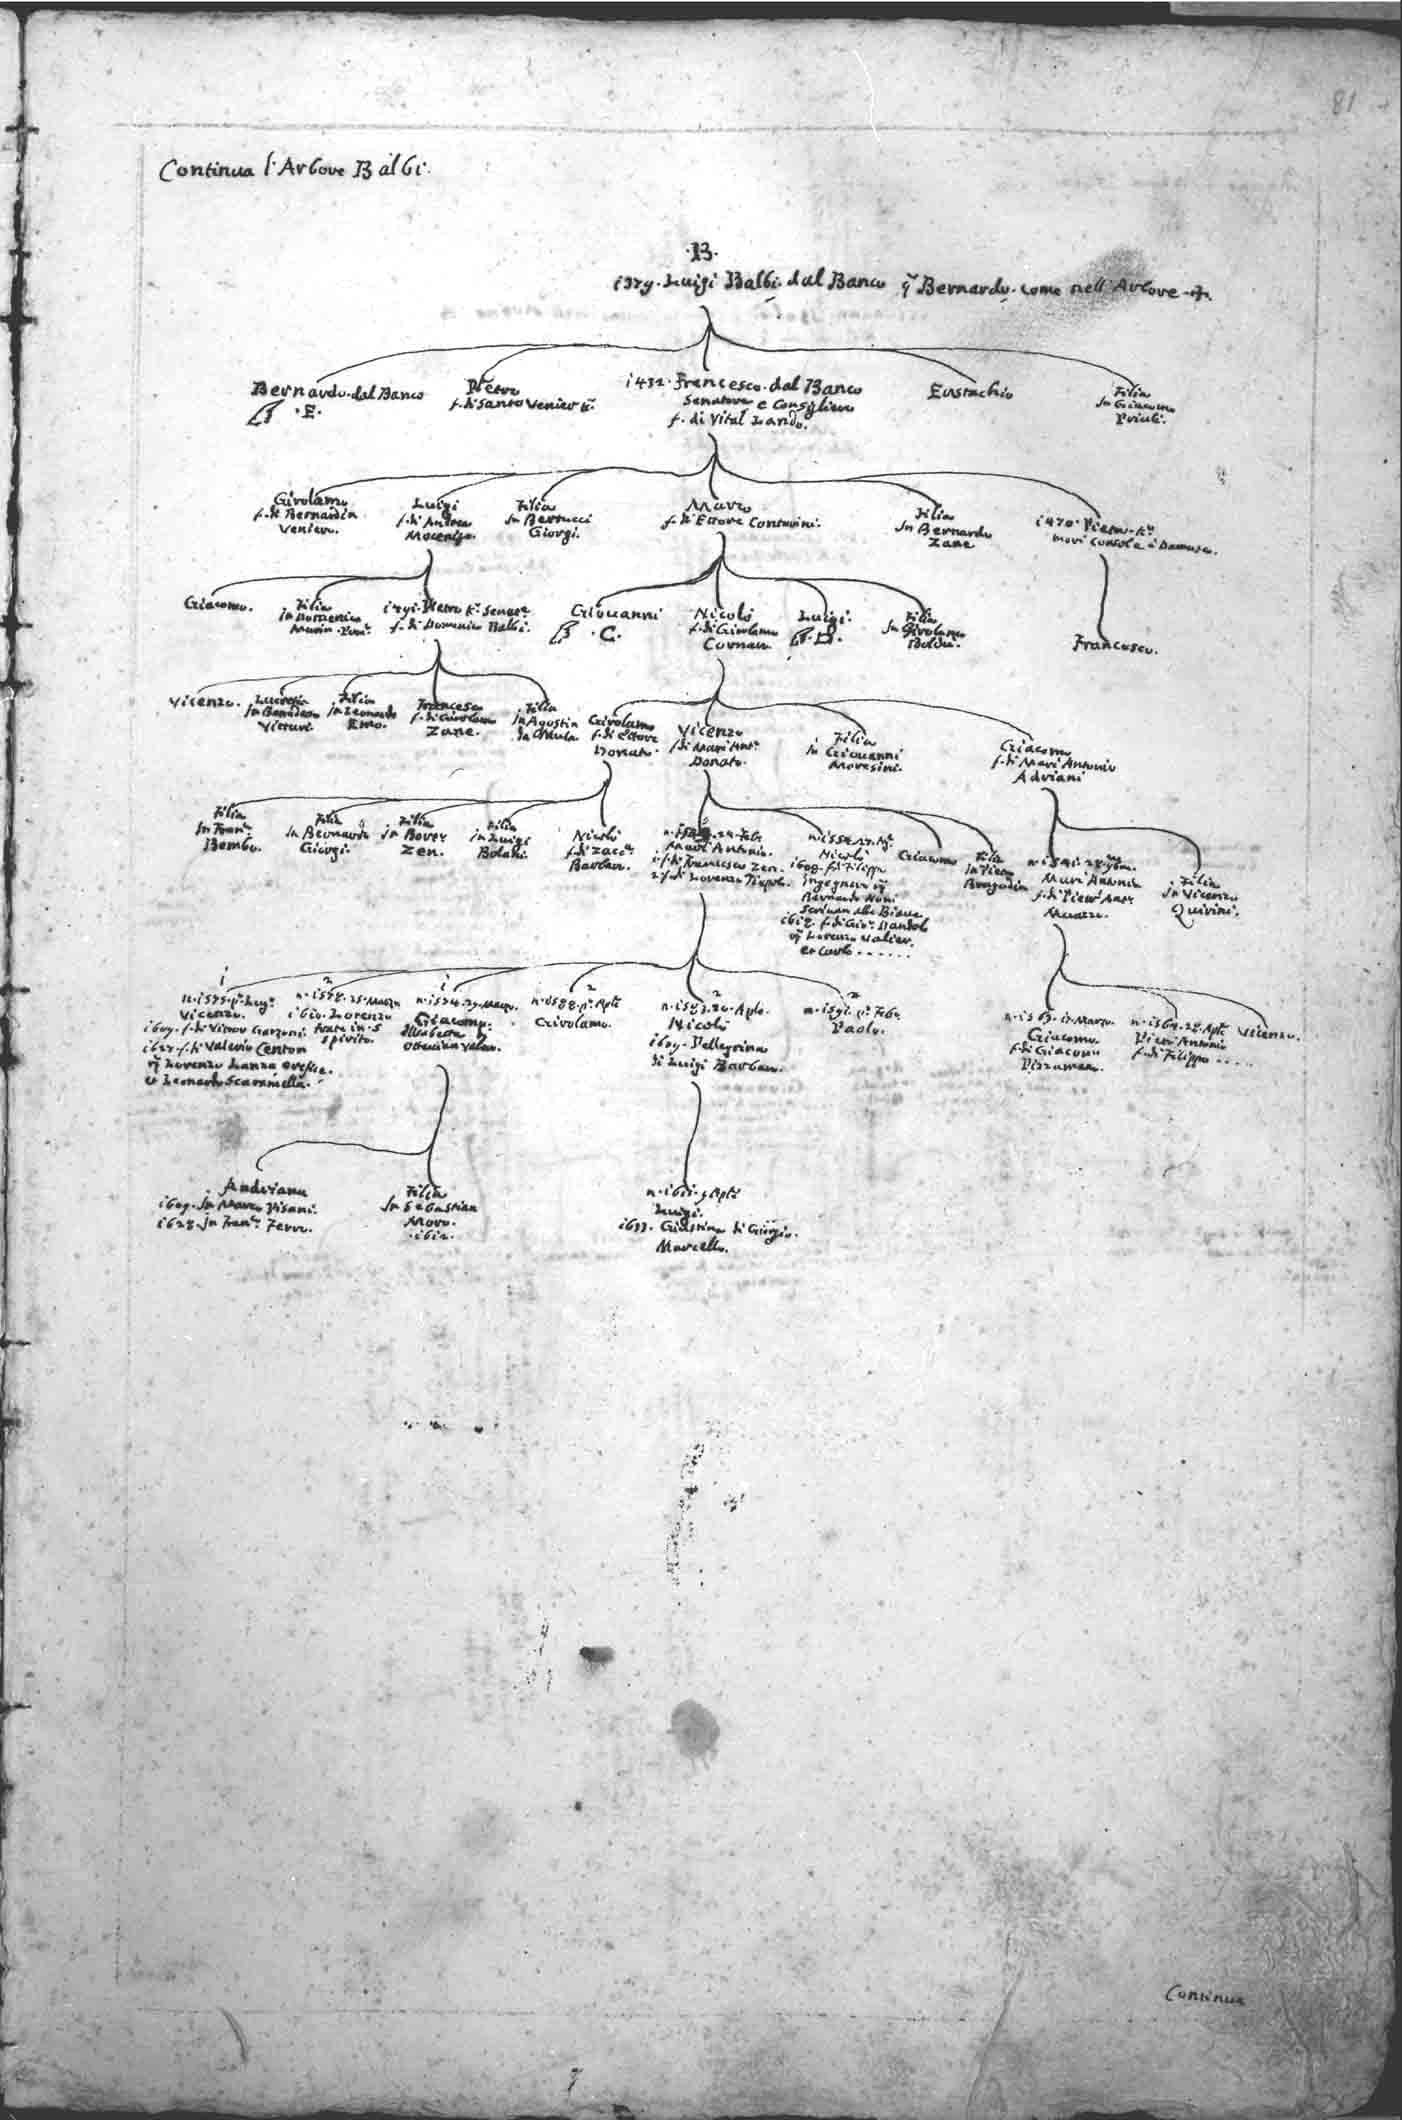 81
Continua l'Arbore Balbi.
.B.
1379. Luigi Balbi. dal Banco q̃ Bernardo. come nell'Arbore
Bernardo. dal Banco
.E.
Pietro
f. di Santo Venier
1432. Francesco. dal Banco
Senatore e Consigliere
f. di Vital Lando.
Eustachio
Filia
In Giacomo
Priuli.
Girolamo
f. di Bernardin
Venier.
Luigi
f. di Andrea
Mocenigo.
Filia
In Bertucci
Giorgi.
Marco
f. di Ettore Contarini.
Filia
In Bernardo
Zane
1470. Pietro. K.r
mori Console à Damasco.
Giacomo.
Filia
In Domenico
Marin.
Pietro K.r Senat.e
f. di Domenico Balbi.
Giouanni
.C.
Nicolò
f. di Girolamo
Cornaro
Luigi.
.D.
Filia
In Girolamo
Boldù.
Francesco.
Vicenzo.
Lucretia
In
Vitturi.
Filia
In Leonardo
Emo.
Francesco
f. di Girolamo
Zane.
Filia
In Agostin
da Mula.
Girolamo
f. di Ettore
Donato.
Vicenzo
f. di Marc' Ant.o
Donato.
Filia
In Giouanni
Moresini.
Giacomo
f. di Marc' Antonio
Adriani
Filia
In Fran.o
Bembo.
Filia
In Bernardo
Giorgi.
Filia
In
Zen.
Filia
in Luigi
Bolani.
Nicolò
f. di Zacc.a
Barbaro.
Marc' Antonio.
1. f. di Francesco Zen.
2. f. di Lorenzo Tiepolo.
Nicolò
1608. f. di Filippo
Ingegneri q̃
Bernardo
Scriuan alle Biaue
f. di Gio: Dandolo
q̃ Lorenzo Valier.
Giacomo
Filia
In Piero
Bragadin
Marc' Antonio
f. di Pietr' Ant.o
Muazzo.
Filia
In Vicenzo
Quirini.
1
n. 1575. p.o
Vicenzo.
1609. f. di Garzoni.
1627. f. di Valerio Centon
q̃ Lorenzo Lanza orefice.
Leonardo Scaramella.
2
n. 1578. 25. Marzo
1610. Lorenzo
frate in S.
Spirito.
1
n. 1574. 29. Marzo.
Giacomo.
Ottauian Valier.
2
n. 1588. p.o Aple
Girolamo.
2
n. 1583. 20. Aple.
Nicolò
1609. Pellegrina
di Luigi Barbaro.
2
n. 1591. p.o Febr.
Paolo.
Giacomo.
f. di Giacomo
Pizzamano.
Pietr' Antonio
f. di Filippo ....
Vicenzo.
Andriana
1609. In Marco Pisani.
1628. In Fran.o Ferro.
Filia
In Sebastian
Moro.
.1612.
Luigi.
1633. Giustina di Giorgio.
Marcello.
Continua